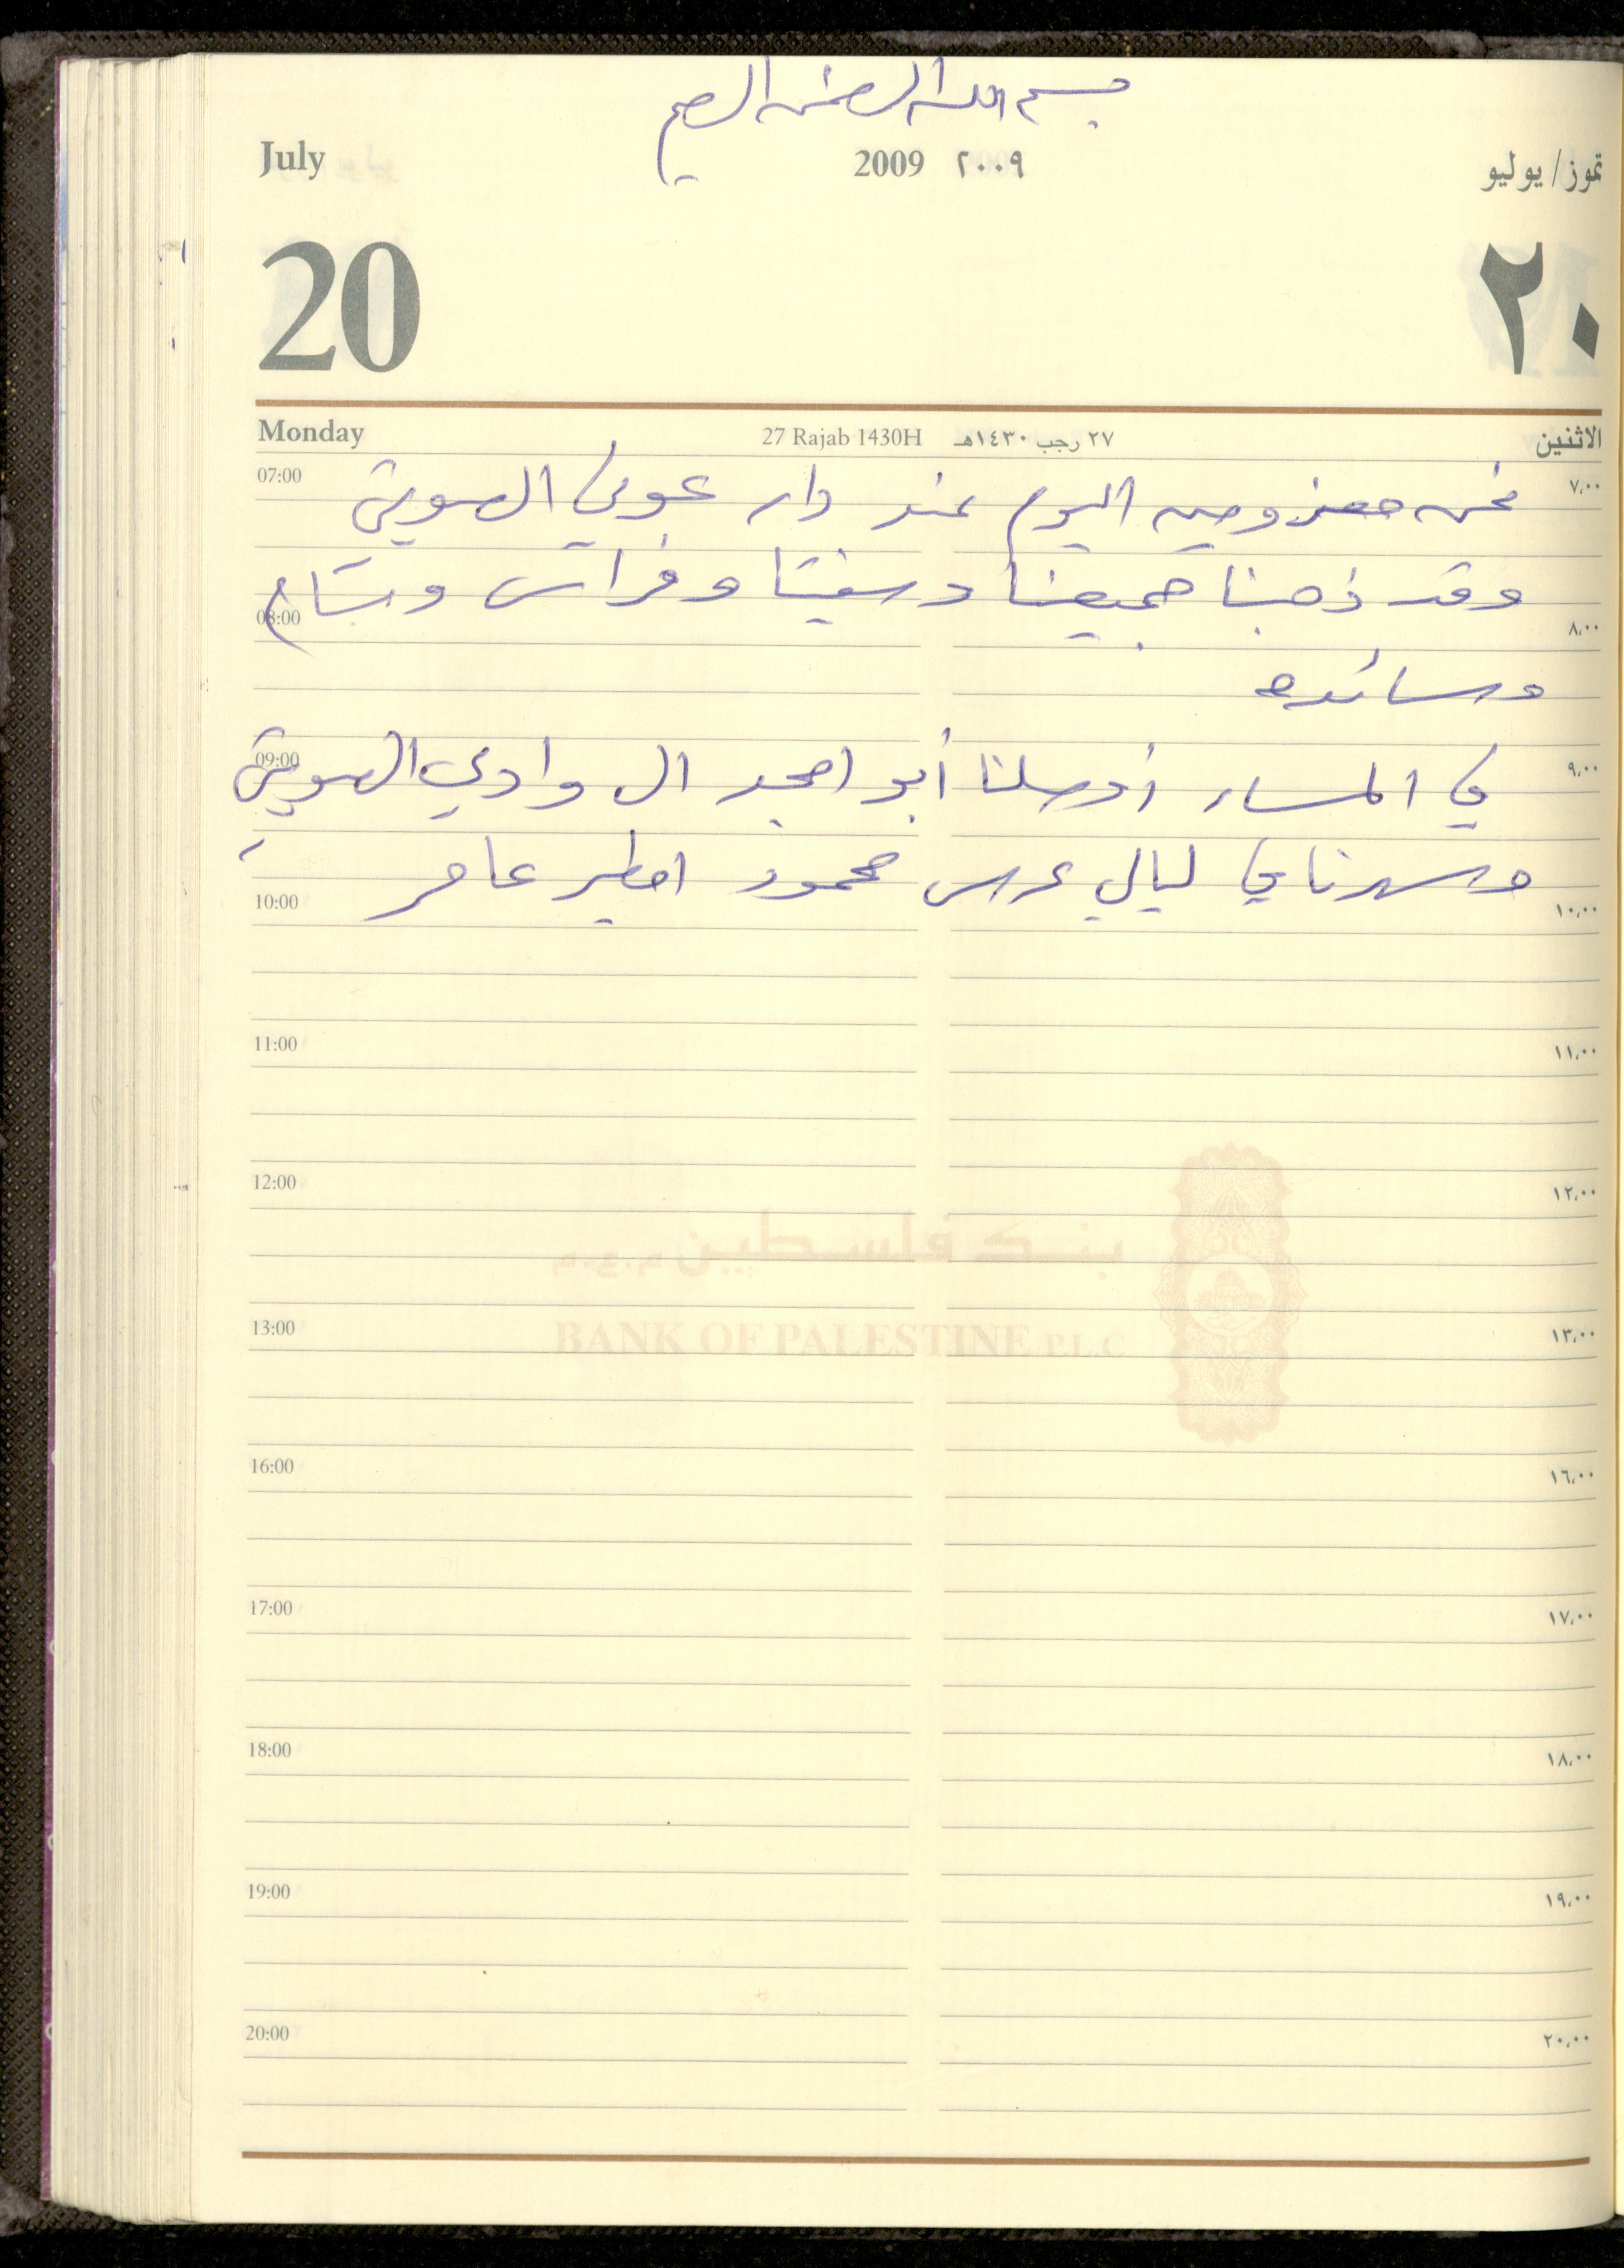 بسم الله الرحمن الرحيم
July 2009 ٢٠٠٩ تموز/يوليو
20 ٢٠
Monday 27 Rajab 1430H ٢٧ رجب ١٤٣٠هـ الاثنين
07:00 نحن معزومين اليوم عند دار عوني الهوين ٧،٠٠
وقد ذهبنا جميعنا وسفيتا وفراس وبسام
08:00 ٨،٠٠
وسائده
09:00 في المساء أوصلنا أبو امجد الى وادي الهوين ٩،٠٠
وسهرنا في ليالي عرس محمود امطير عامر
10:00 ١٠،٠٠
11:00 ١١،٠٠
12:00 ١٢،٠٠
بنك فلسطين م.ع.م
BANK OF PALESTINE P.L.C
13:00 ١٣،٠٠
16:00 ١٦،٠٠
17:00 ١٧،٠٠
18:00 ١٨،٠٠
19:00 ١٩،٠٠
20:00 ٢٠،٠٠